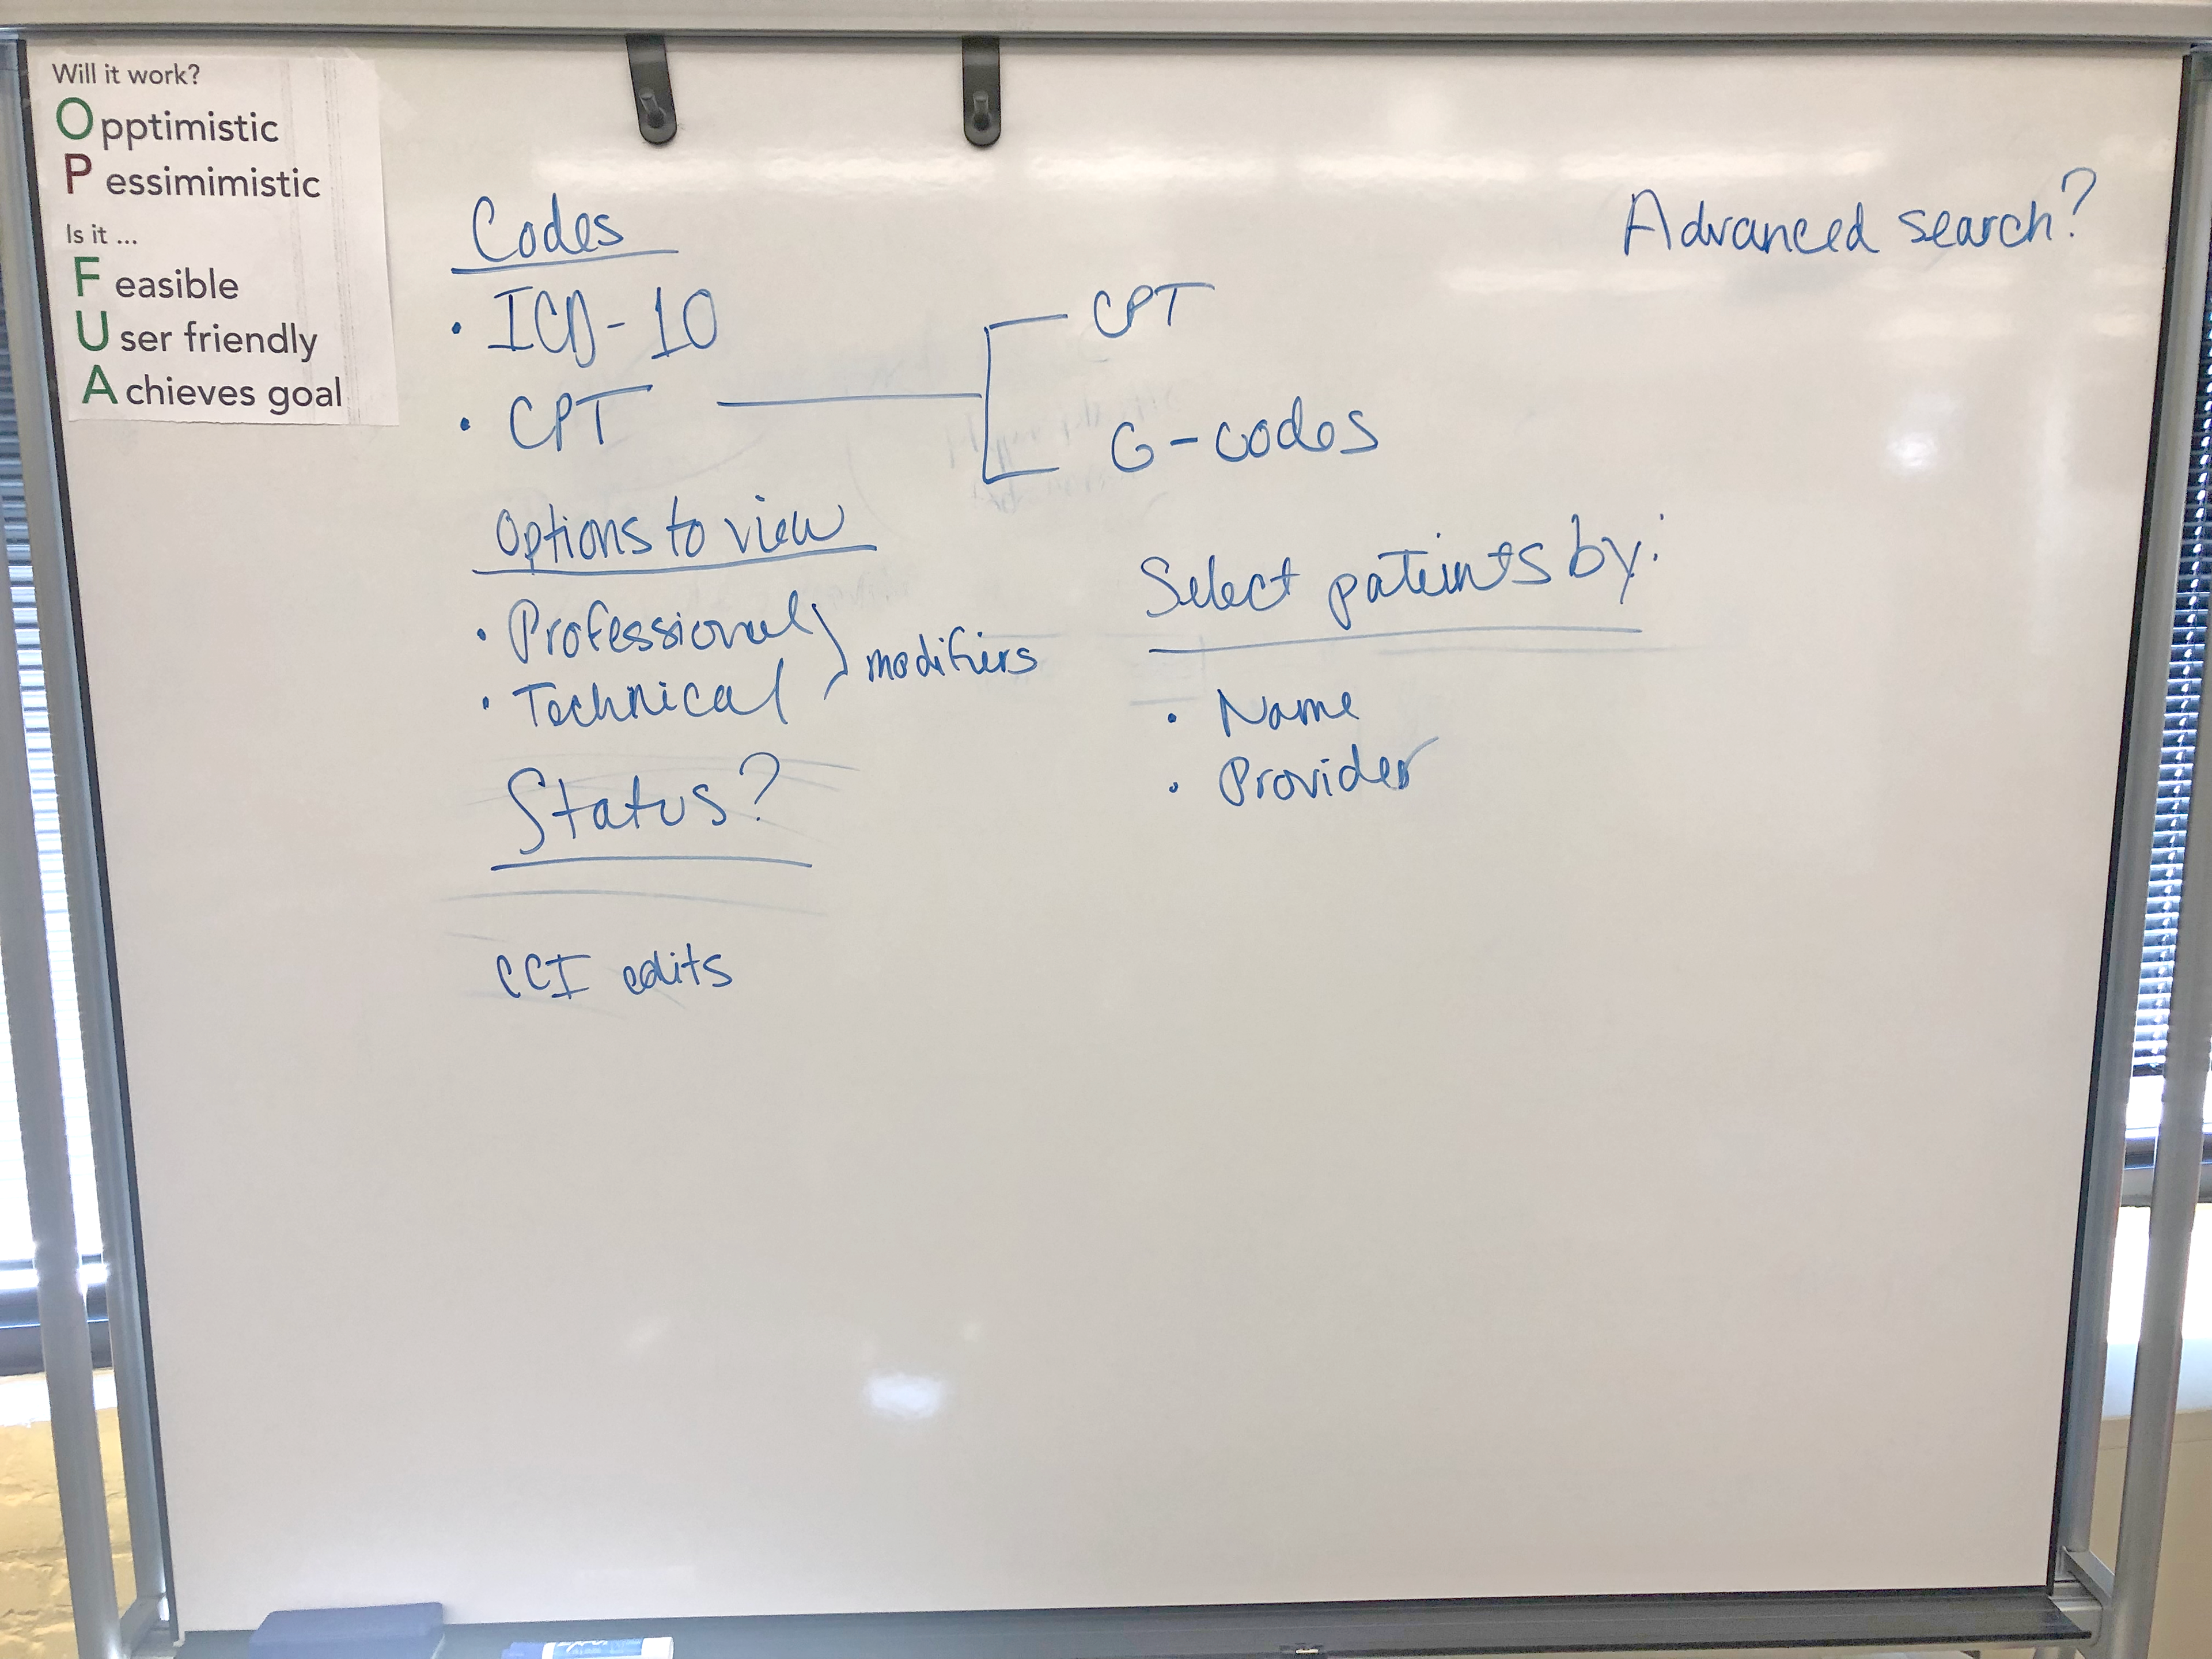 Will it work?
Opptimistic
Pessimimistic
Is it ...
Feasible
User friendly
Achieves goal
Advanced search?
Codes
• ICD-10
• CPT
CPT
G-codes
Options to view
• Professional
• Technical
modifiers
Status?
CCI edits
Select pateints by:
• Name
• Provider